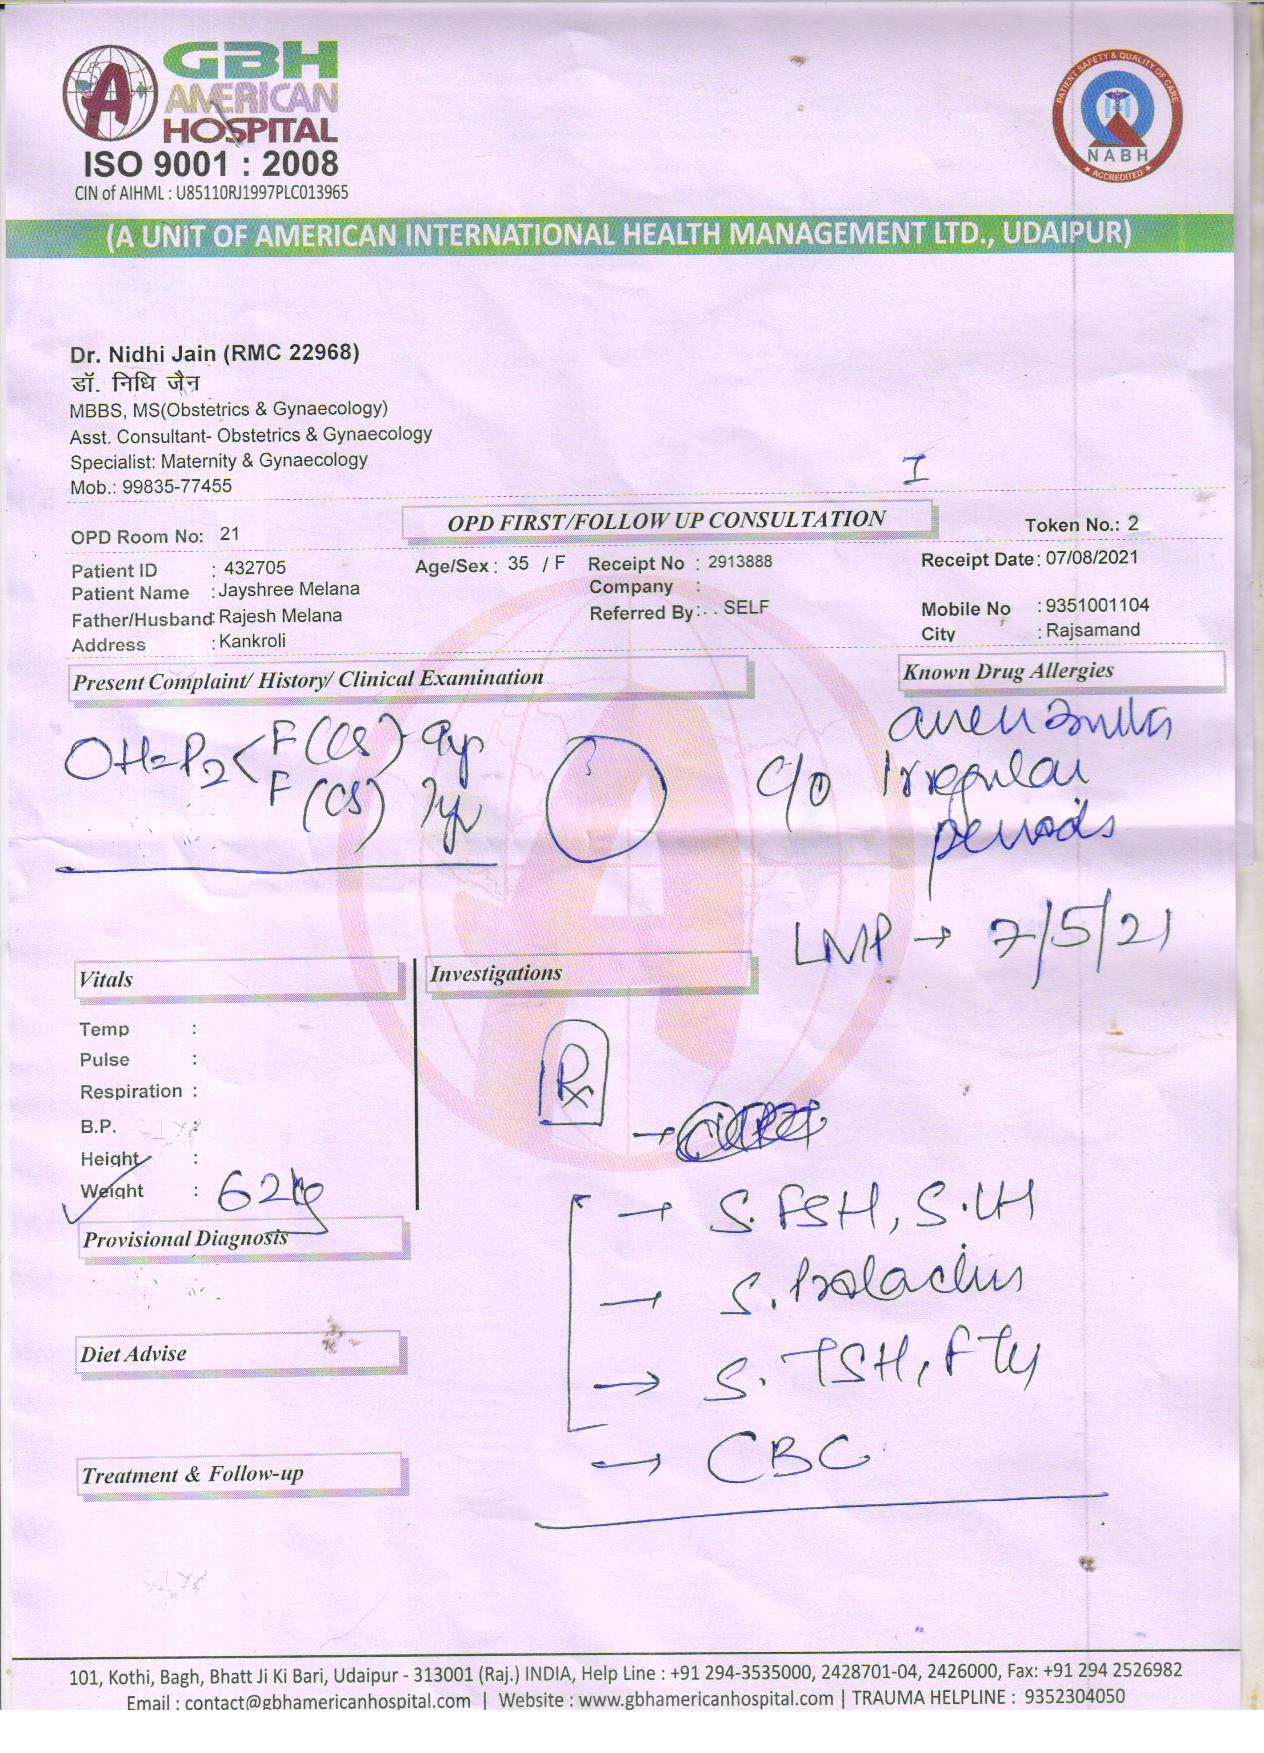 GBH
AMERICAN
HOSPITAL
ISO 9001 : 2008
CIN of AIHML : U85110RJ1997PLC013965
PATIENT SAFETY & QUALITY OF CARE
NABH
ACCREDITED
(A UNIT OF AMERICAN INTERNATIONAL HEALTH MANAGEMENT LTD., UDAIPUR)
Dr. Nidhi Jain (RMC 22968)
डॉ. निधि जैन
MBBS, MS(Obstetrics & Gynaecology)
Asst. Consultant- Obstetrics & Gynaecology
Specialist: Maternity & Gynaecology
Mob.: 99835-77455
I
OPD Room No: 21 OPD FIRST/FOLLOW UP CONSULTATION Token No.: 2
Patient ID : 432705 Age/Sex : 35 / F Receipt No : 2913888 Receipt Date: 07/08/2021
Patient Name : Jayshree Melana Company :
Father/Husband: Rajesh Melana Referred By: . . SELF Mobile No : 9351001104
Address : Kankroli City : Rajsamand
Present Complaint/ History/ Clinical Examination Known Drug Allergies
P2 < F (CS)
F (CS) 7yr
c/o Irregular
periods
LMP → 7/5/21
Vitals Investigations
Temp :
Pulse :
Respiration :
B.P. :
Height :
Weight : 62kg
Rx
→ S. FSH, S. LH
→ S. Prolactin
→ S. TSH,
→ CBC
Provisional Diagnosis
Diet Advise
Treatment & Follow-up
101, Kothi, Bagh, Bhatt Ji Ki Bari, Udaipur - 313001 (Raj.) INDIA, Help Line : +91 294-3535000, 2428701-04, 2426000, Fax: +91 294 2526982
Email : contact@gbhamericanhospital.com | Website : www.gbhamericanhospital.com | TRAUMA HELPLINE : 9352304050